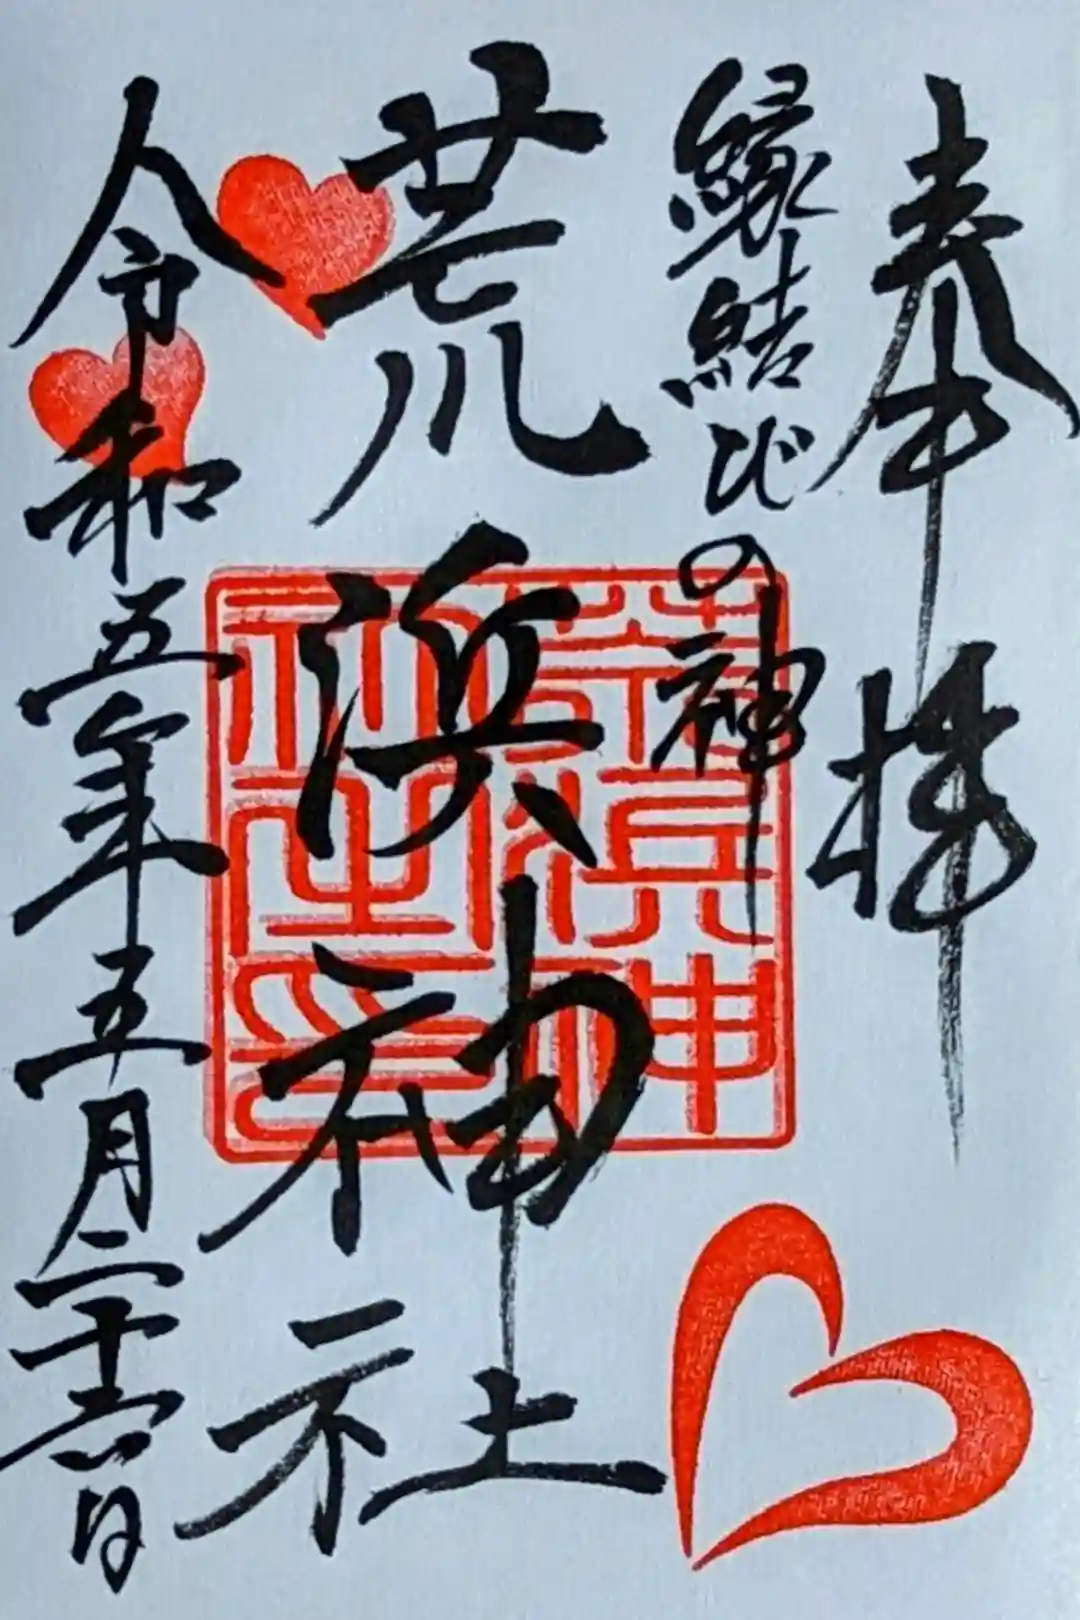 奉拝
縁結びの神
荒川
浜
神
社
令和五年五月二十六日